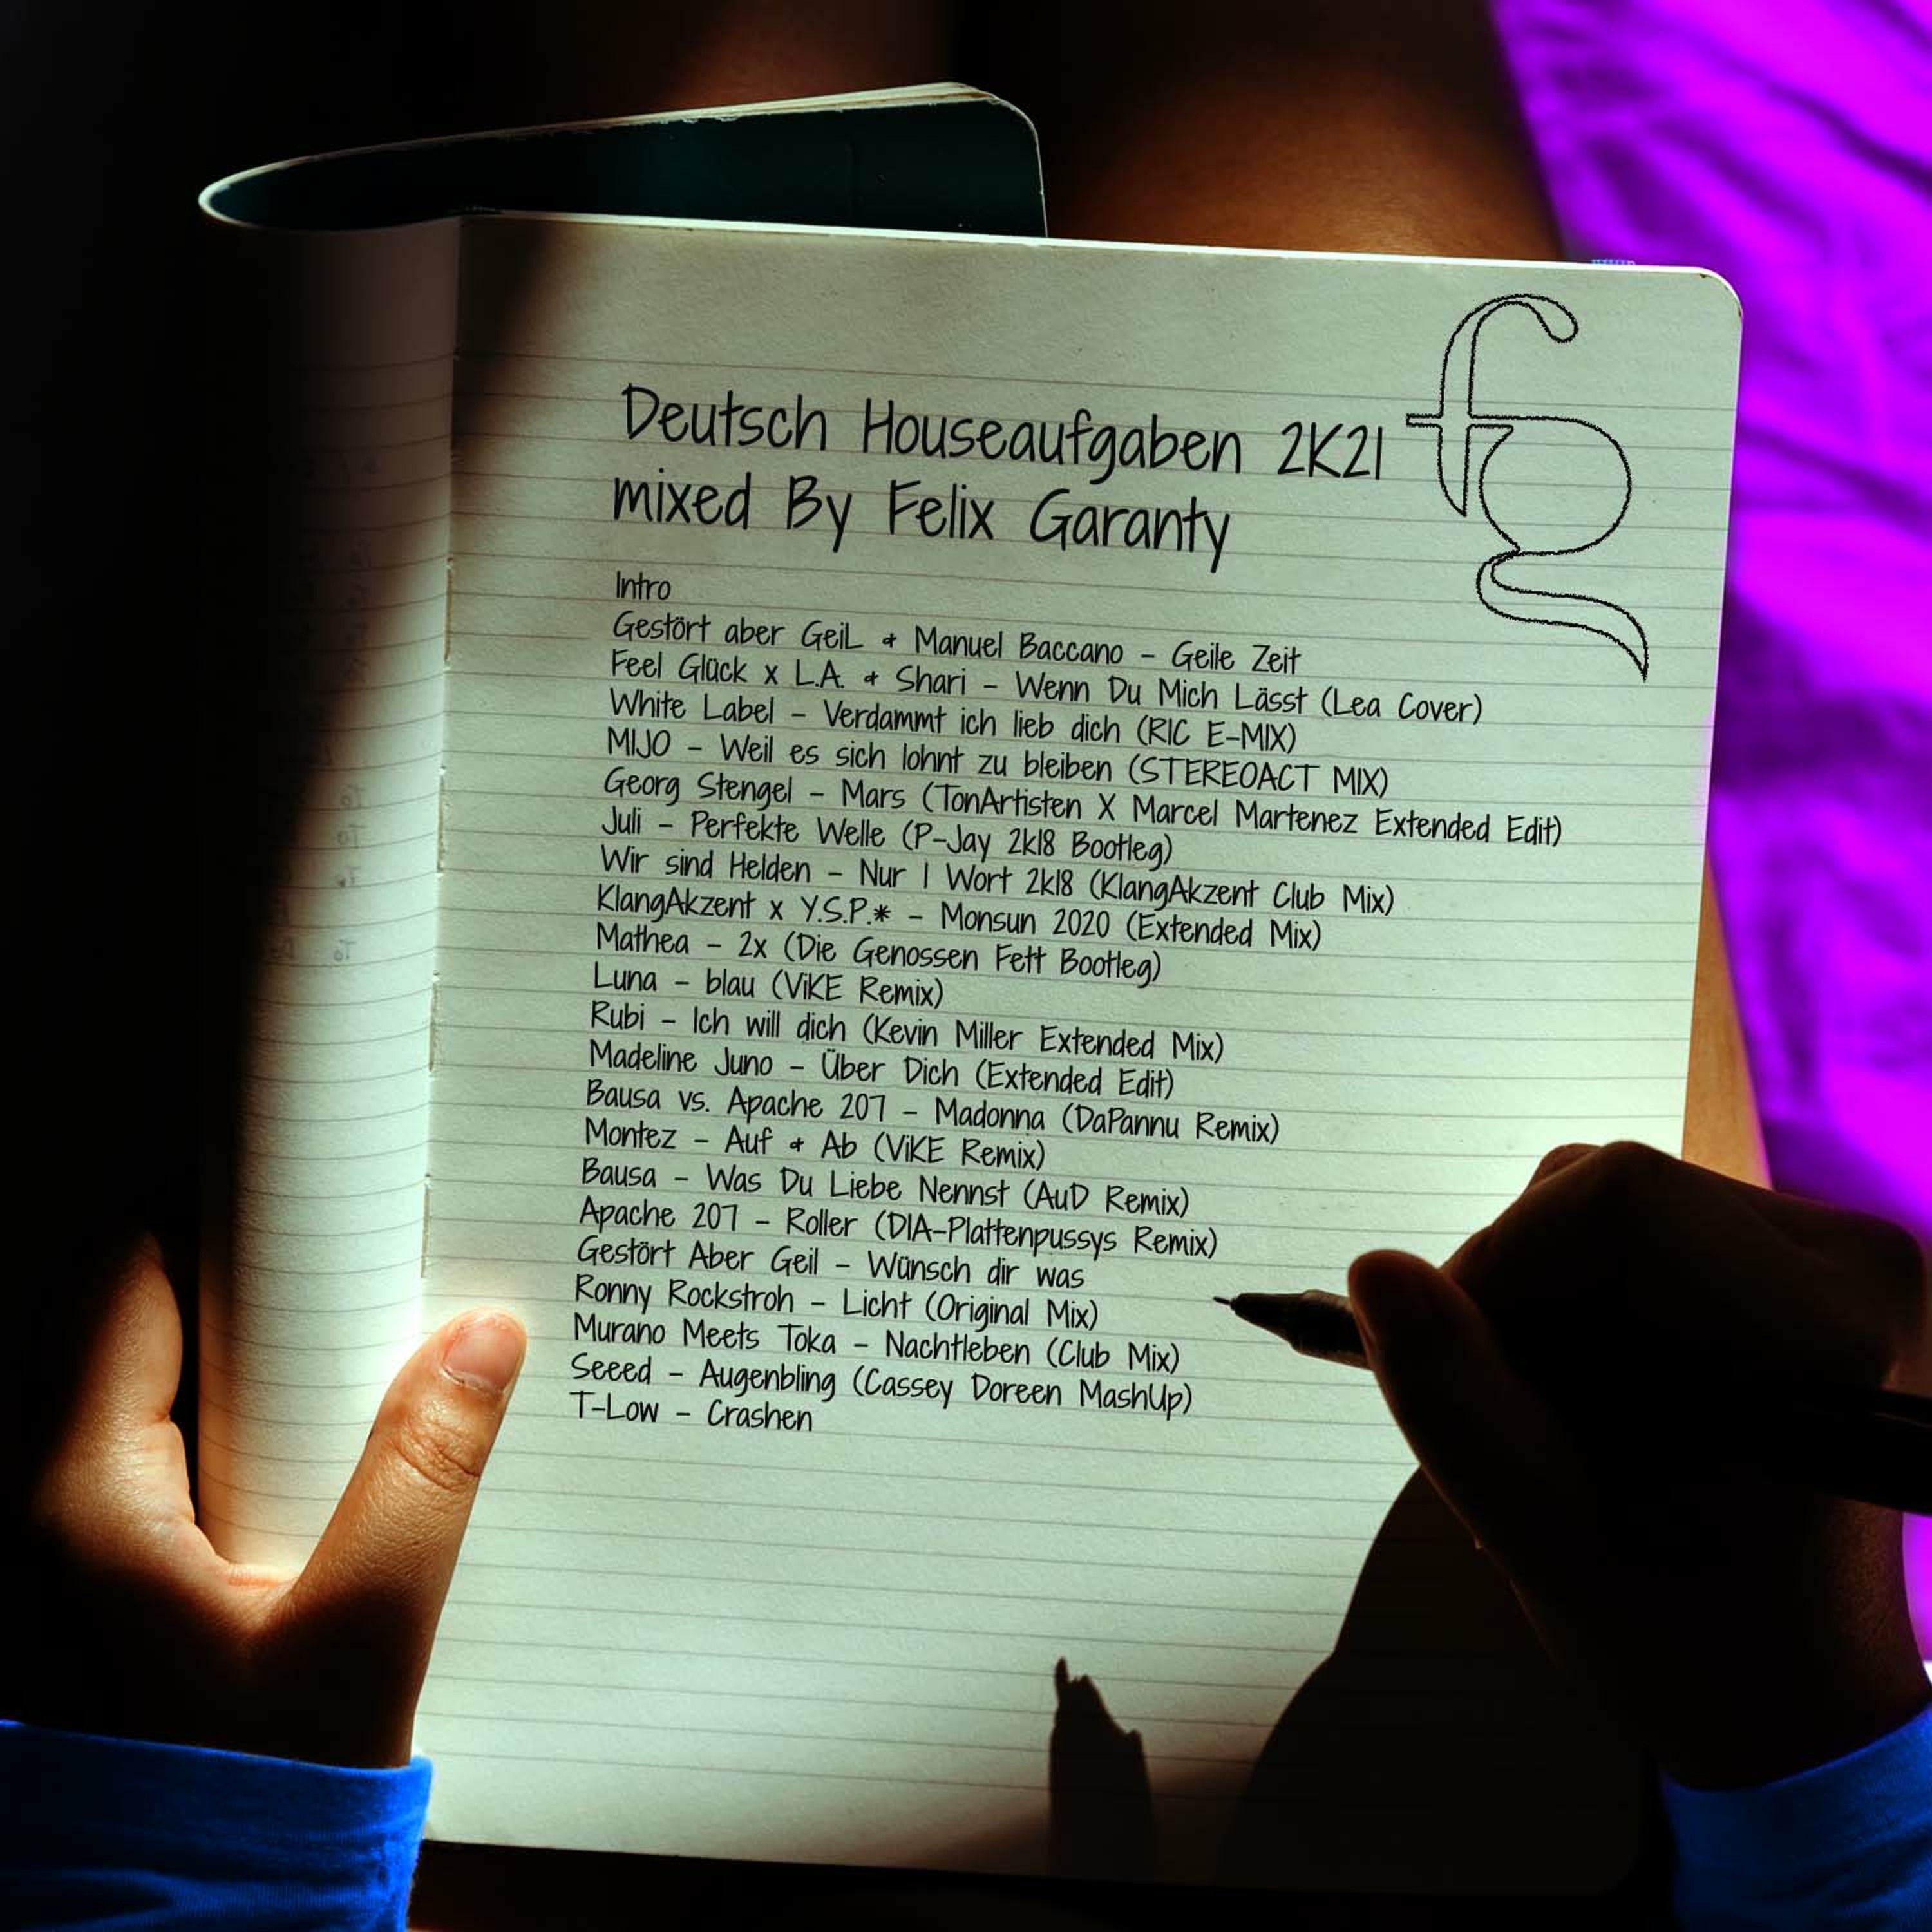 Deutsch Houseaufgaben 2K21
mixed By Felix Garanty
fg
Intro
Gestört aber GeiL & Manuel Baccano - Geile Zeit
Feel Glück x L.A. & Shari - Wenn Du Mich Lässt (Lea Cover)
White Label - Verdammt ich lieb dich (RIC E-MIX)
MIJO - Weil es sich lohnt zu bleiben (STEREOACT MIX)
Georg Stengel - Mars (TonArtisten X Marcel Martenez Extended Edit)
Juli - Perfekte Welle (P-Jay 2k18 Bootleg)
Wir sind Helden - Nur 1 Wort 2k18 (KlangAkzent Club Mix)
KlangAkzent x Y.S.P.* - Monsun 2020 (Extended Mix)
Mathea - 2x (Die Genossen Fett Bootleg)
Luna - blau (ViKE Remix)
Rubi - Ich will dich (Kevin Miller Extended Mix)
Madeline Juno - Über Dich (Extended Edit)
Bausa vs. Apache 207 - Madonna (DaPannu Remix)
Montez - Auf & Ab (ViKE Remix)
Bausa - Was Du Liebe Nennst (AuD Remix)
Apache 207 - Roller (DIA-Plattenpussys Remix)
Gestört Aber Geil - Wünsch dir was
Ronny Rockstroh - Licht (Original Mix)
Murano Meets Toka - Nachtleben (Club Mix)
Seeed - Augenbling (Cassey Doreen MashUp)
T-Low - Crashen